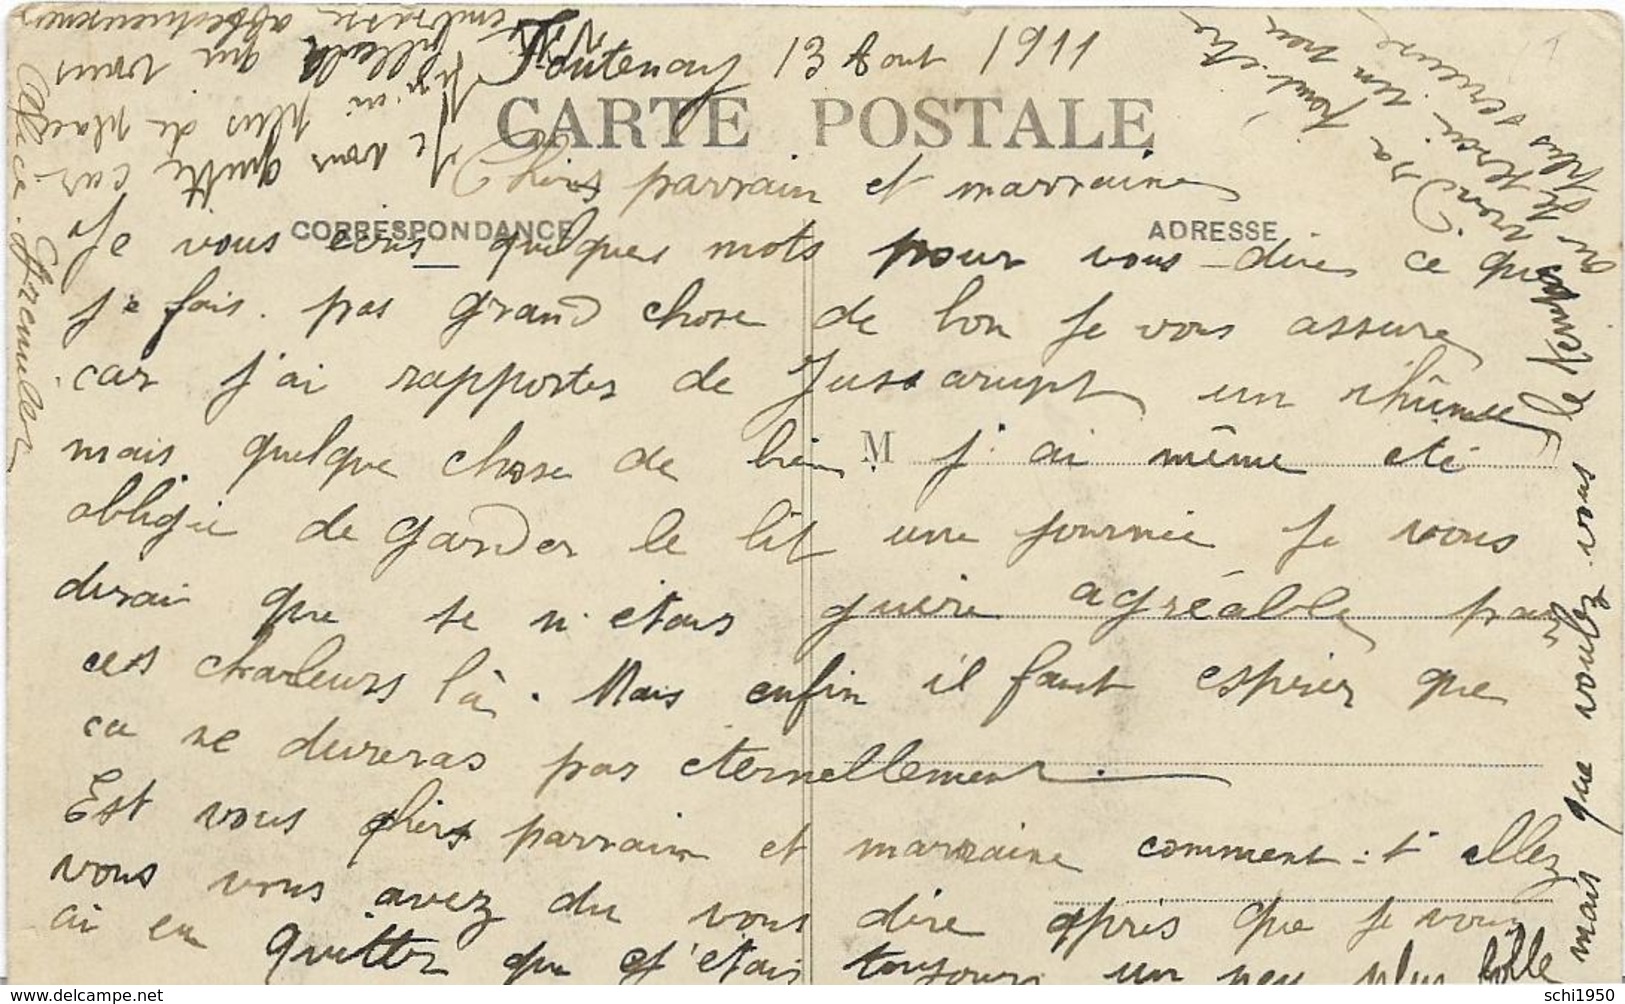 Fontenay 13 Aout 1911
CARTE POSTALE
Chers parrain et marraine
CORRESPONDANCE
ADRESSE
Je vous écris quelques mots pour vous dire ce que
je fais. pas grand chose de bon je vous assure
car j'ai rapportes de Jussarupt un rhûme
mais quelque chose de bien j'ai même eté
M
obligée de garder le lit une journée je vous
dirai que se n'etais guère agréable par
ces chaleurs là. Mais enfin il faut espérer que
ca ne dureras pas eternellement.
Est vous chers parrain et marraine comment-t'allez
vous vous avez du vous dire après que je vous
ai eu quitter que j'étais toujours un peu plus folle
mais que voulez vous
le temps
on viendra peut-etre
plus serieuse
Je vous quitte car
je n'ai plus de place
qui vous
embrasse affectueusement
Alice Gremillet
schi1950